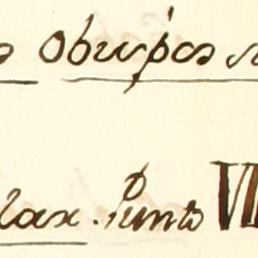 s Obispos
lax. Punto VII